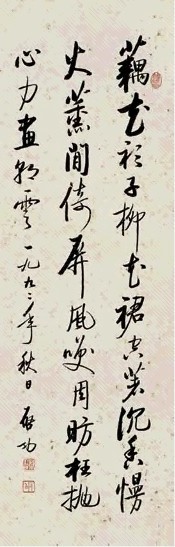 藕花衫子柳花裙空著沉香慢
火薰閒倚屏風笑周昉枉抛
心力画朝云一九九二年秋日启功